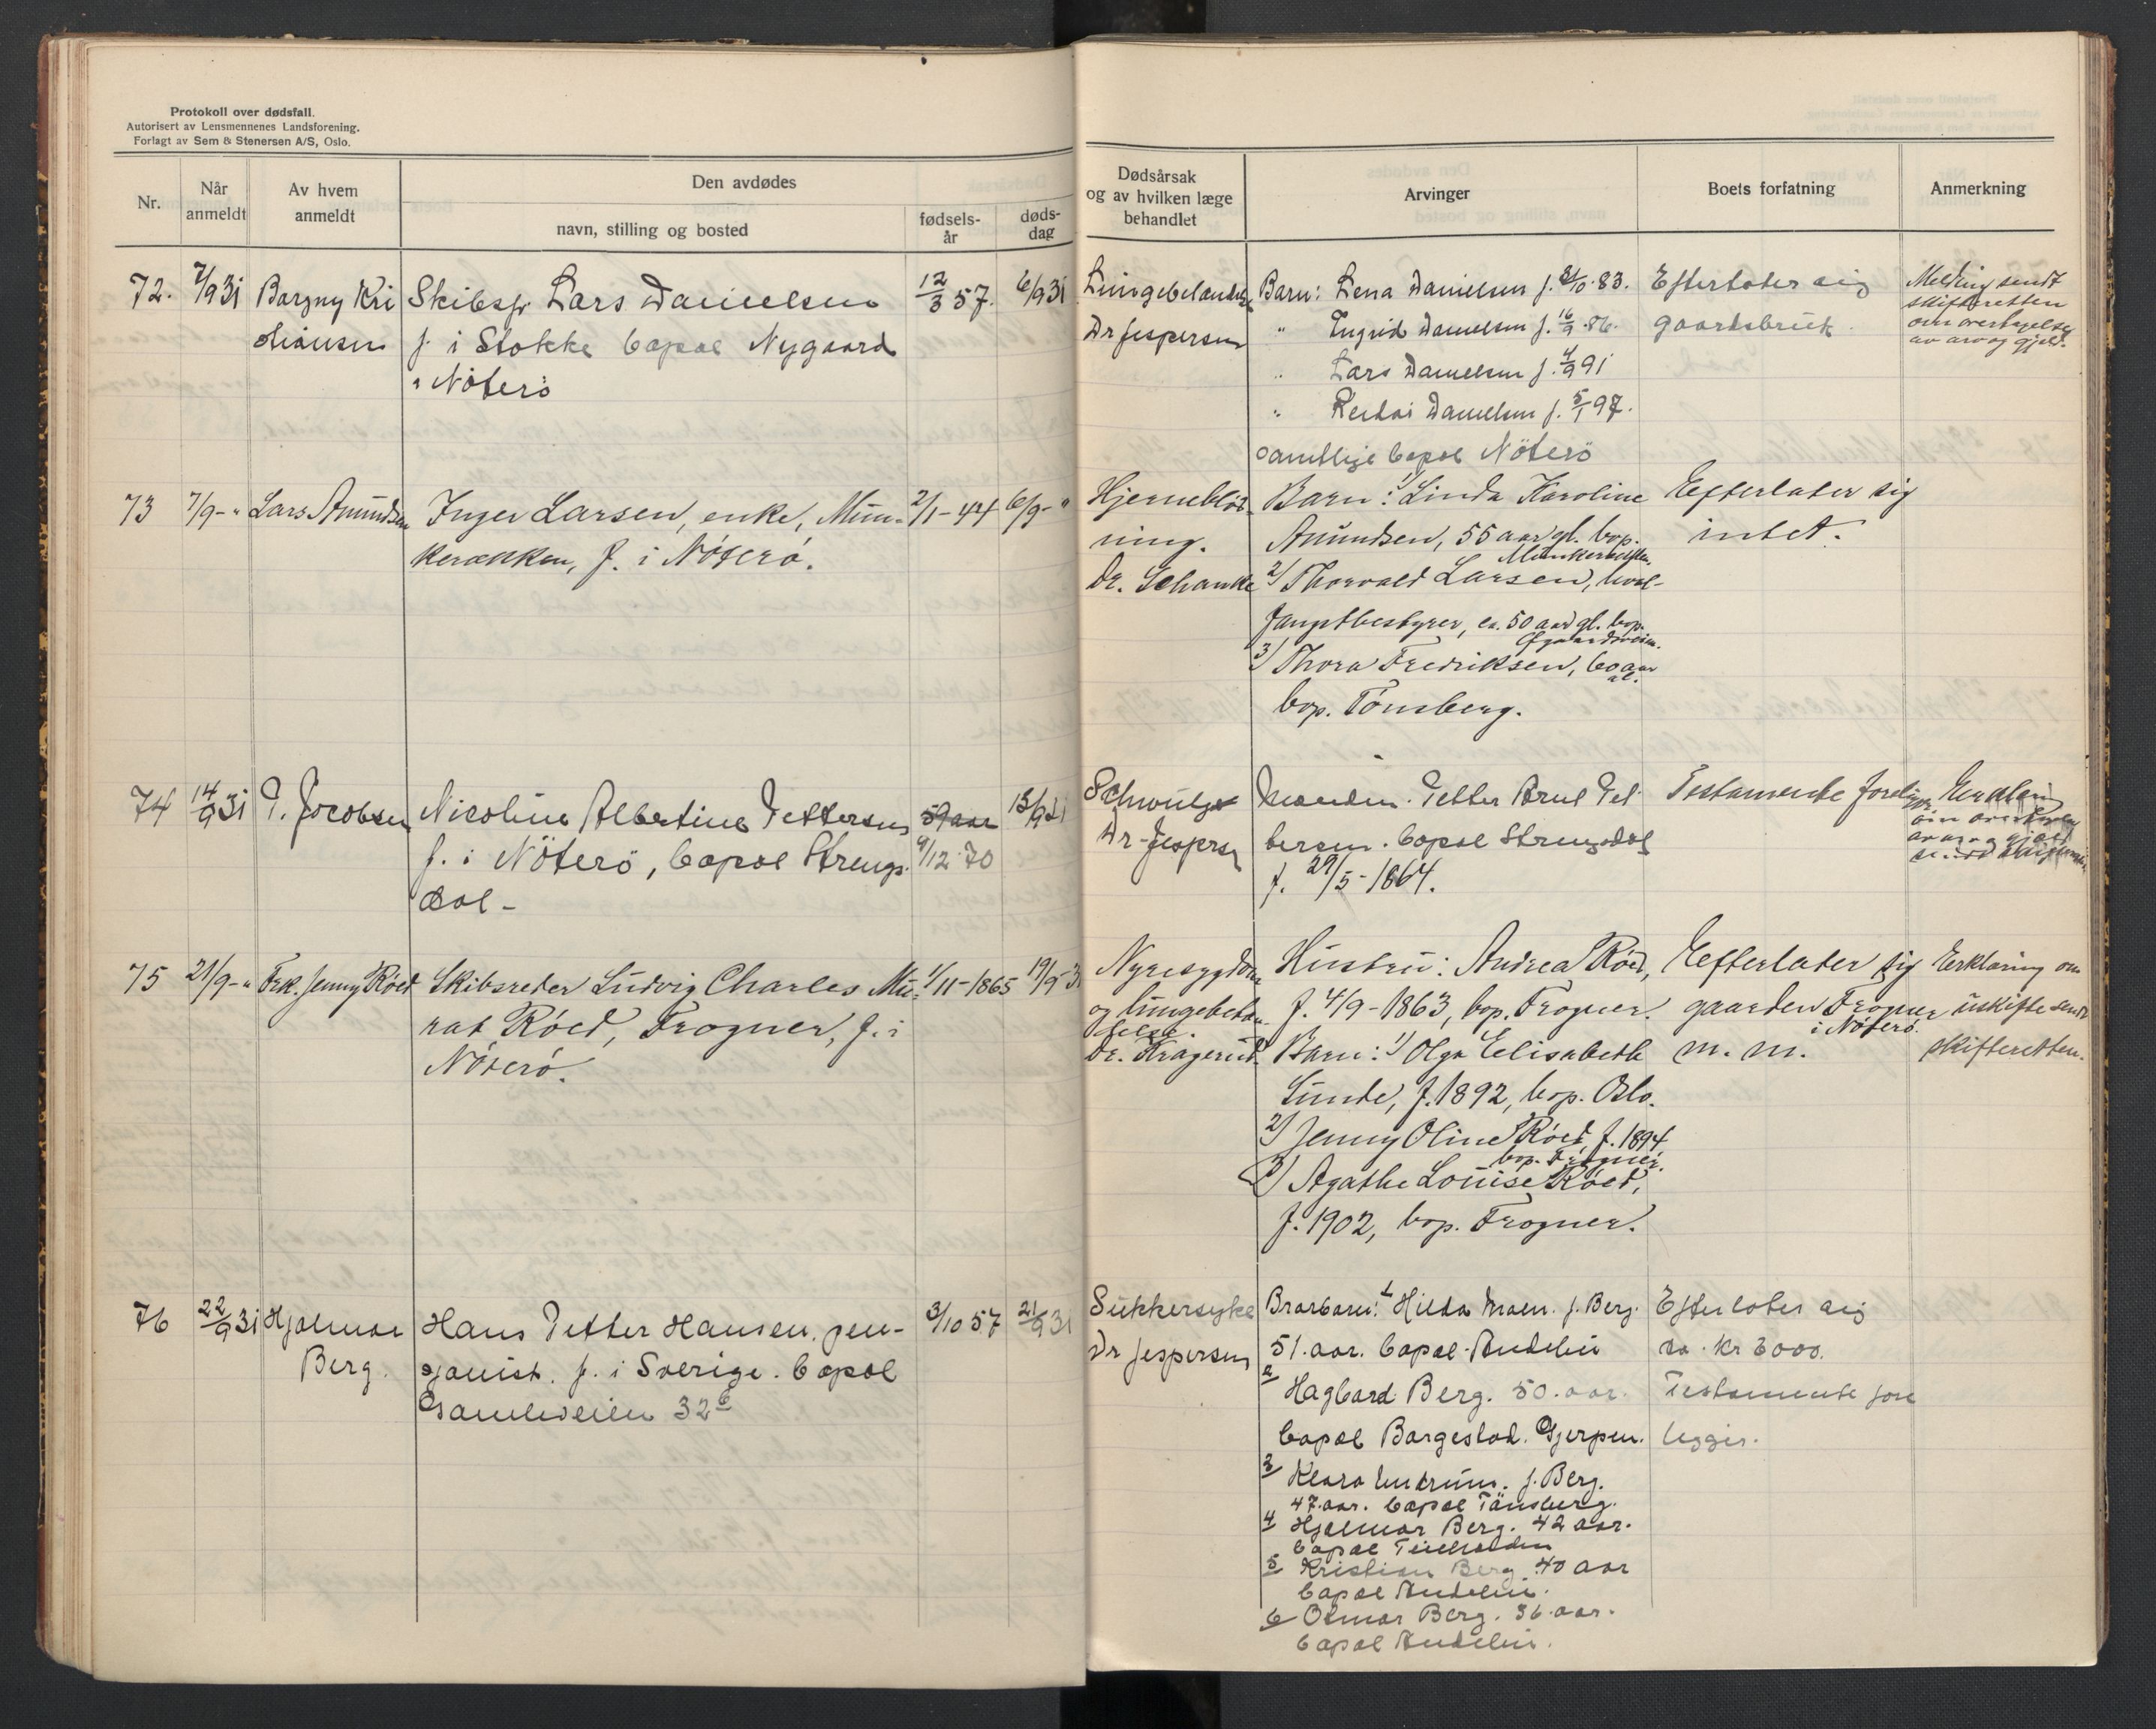 Protokoll over dødsfall.
Autorisert av Lensmennenes Landsforening.
Forlagt av Sem & Stenersen A/S, Oslo.
Nr.
Når anmeldt
Av hvem anmeldt
Den avdødes
navn, stilling og bosted
fødsels-år
døds-dag
Dødsårsak og av hvilken læge behandlet
Arvinger
Boets forfatning
Anmerkning
72.
7/9 31
Borgny Kri
stiansen
Skibsfr Lars Danielsen
f. i Stokke bopæl Nygaard
i Nøterö
12/3 57.
6/9 31
Lungebetændelse
Dr Jespersen
Barn: Lena Danielsen f. 31/10 83.
" Ingrid Danielsen f. 16/9 86.
" Lars Danielsen f. 4/9 91
" Danielsen f. 5/1 97.
samtlige bopæl Nøterö
Efterlater sig
gaardsbruk.
Melding sendt
skifteretten
om overtagelse
av arv og gjeld.
73
7/9 - "
Lars Amundsen
Inger Larsen, enke, Mun-
kerækken, f. i Nøterö.
2/1 - 44
6/9 - "
Hjerneblød-
ning.
Dr. Schanke
Barn: 1) Linda Karoline
Amundsen, 55 aar gl. bop.
Munkerækken.
2) Thorvald Larsen, hval-
fangstbestyrer, ca. 50 aar gl. bop.
3) Thora Fredriksen, 60 aar
gl.
bop. Tönsberg.
Efterlater sig
intet.
74
14/9 31
T. Jacobsen
Nicoline Albertine Pettersen
f. i Nøterö, bopæl Strengs-
dal -
59 aar
9/12 70
13/9 31
Dr - Jespersen
Manden. Petter Arnt Pet
tersen. bopæl Strengsdal
f. 29/5 - 1864.
Testamente foreligger
Erklæring
om overtagelse
av arv og gjæld
sendt skifteretten
75
21/9 - "
Frk. Jenny Röed
Skibsreder Ludvig Charles Mu-
rat Röed, Frogner, f. i
Nøterö.
1/11 - 1865
19/9 - 31
Nyresygdom
og lungebetæn-
delse.
Dr. Kragerud
Hustru: Andrea Röed,
f. 4/9 - 1863, bop. Frogner.
Barn: 1) Olga Elisabeth
Lunde, f. 1892, bop. Oslo.
2) Jenny Oline Röed, f. 1894
bop. Frogner.
3) Agathe Louise Röed,
f. 1902, bop. Frogner.
Efterlater sig
gaarden Frogner
i Nøterö.
m. m.
Erklæring om
uskifte sendt
skifteretten.
76
22/9 31
Hjalmar
Berg.
Hans Petter Hansen. pen-
sjonist. f. i Sverige. bopæl
Gamleveien 32
3/10 57
21/9 31
Sukkersyke
Dr Jespersen
Brorbarn: 1 Hilda Moen. f. Berg.
51. aar. bopæl
2 Hagbard Berg. 50. aar.
bopæl Borgestad. Gjerpen.
3 Klara f. Berg.
47. aar. bopæl Tönsberg.
4 Hjalmar Berg. 42 aar.
bopæl
5 Kristian Berg. 40 aar
bopæl
6 Otmar Berg. 36. aar.
bopæl
Efterlater sig
ca. kr 6000.
Testamente fore
ligger.